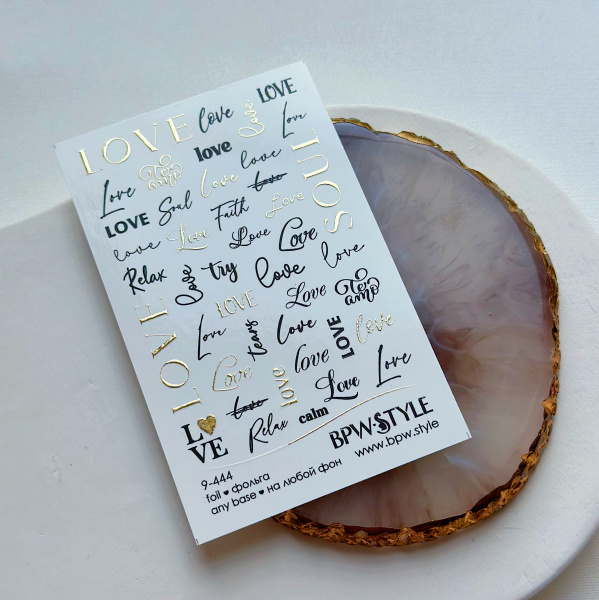 LOVE
love
Love
LOVE
Te amo
love
love
Love
Love
Soul
Love
Love
SOUL
LOVE
Love
Faith
Love
love
Love
Love
Love
Relax
Love
try
love
love
LOVE
LOVE
Love
Te amo
Love
tears
love
LOVE
love
Love
love
love
Love
Love
Love
LOVE
Relax
calm
BPW.STYLE
www.bpw.style
9-444
foil ♥ фольга
any base ♥ на любой фон